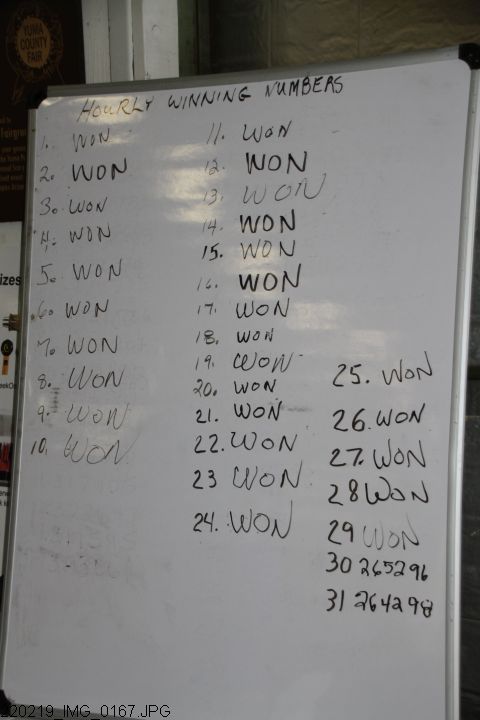 YUMA
COUNTY
FAIR
HOURLY WINNING NUMBERS
1. WON
2. WON
3. WON
4. WON
5. WON
6. WON
7. WON
8. WON
9. WON
10. WON
11. WON
12. WON
13. WON
14. WON
15. WON
16. WON
17. WON
18. WON
19. WON
20. WON
21. WON
22. WON
23 WON
24. WON
25. WON
26. WON
27. WON
28 WON
29 WON
30 265296
31 264298
20219_IMG_0167.JPG